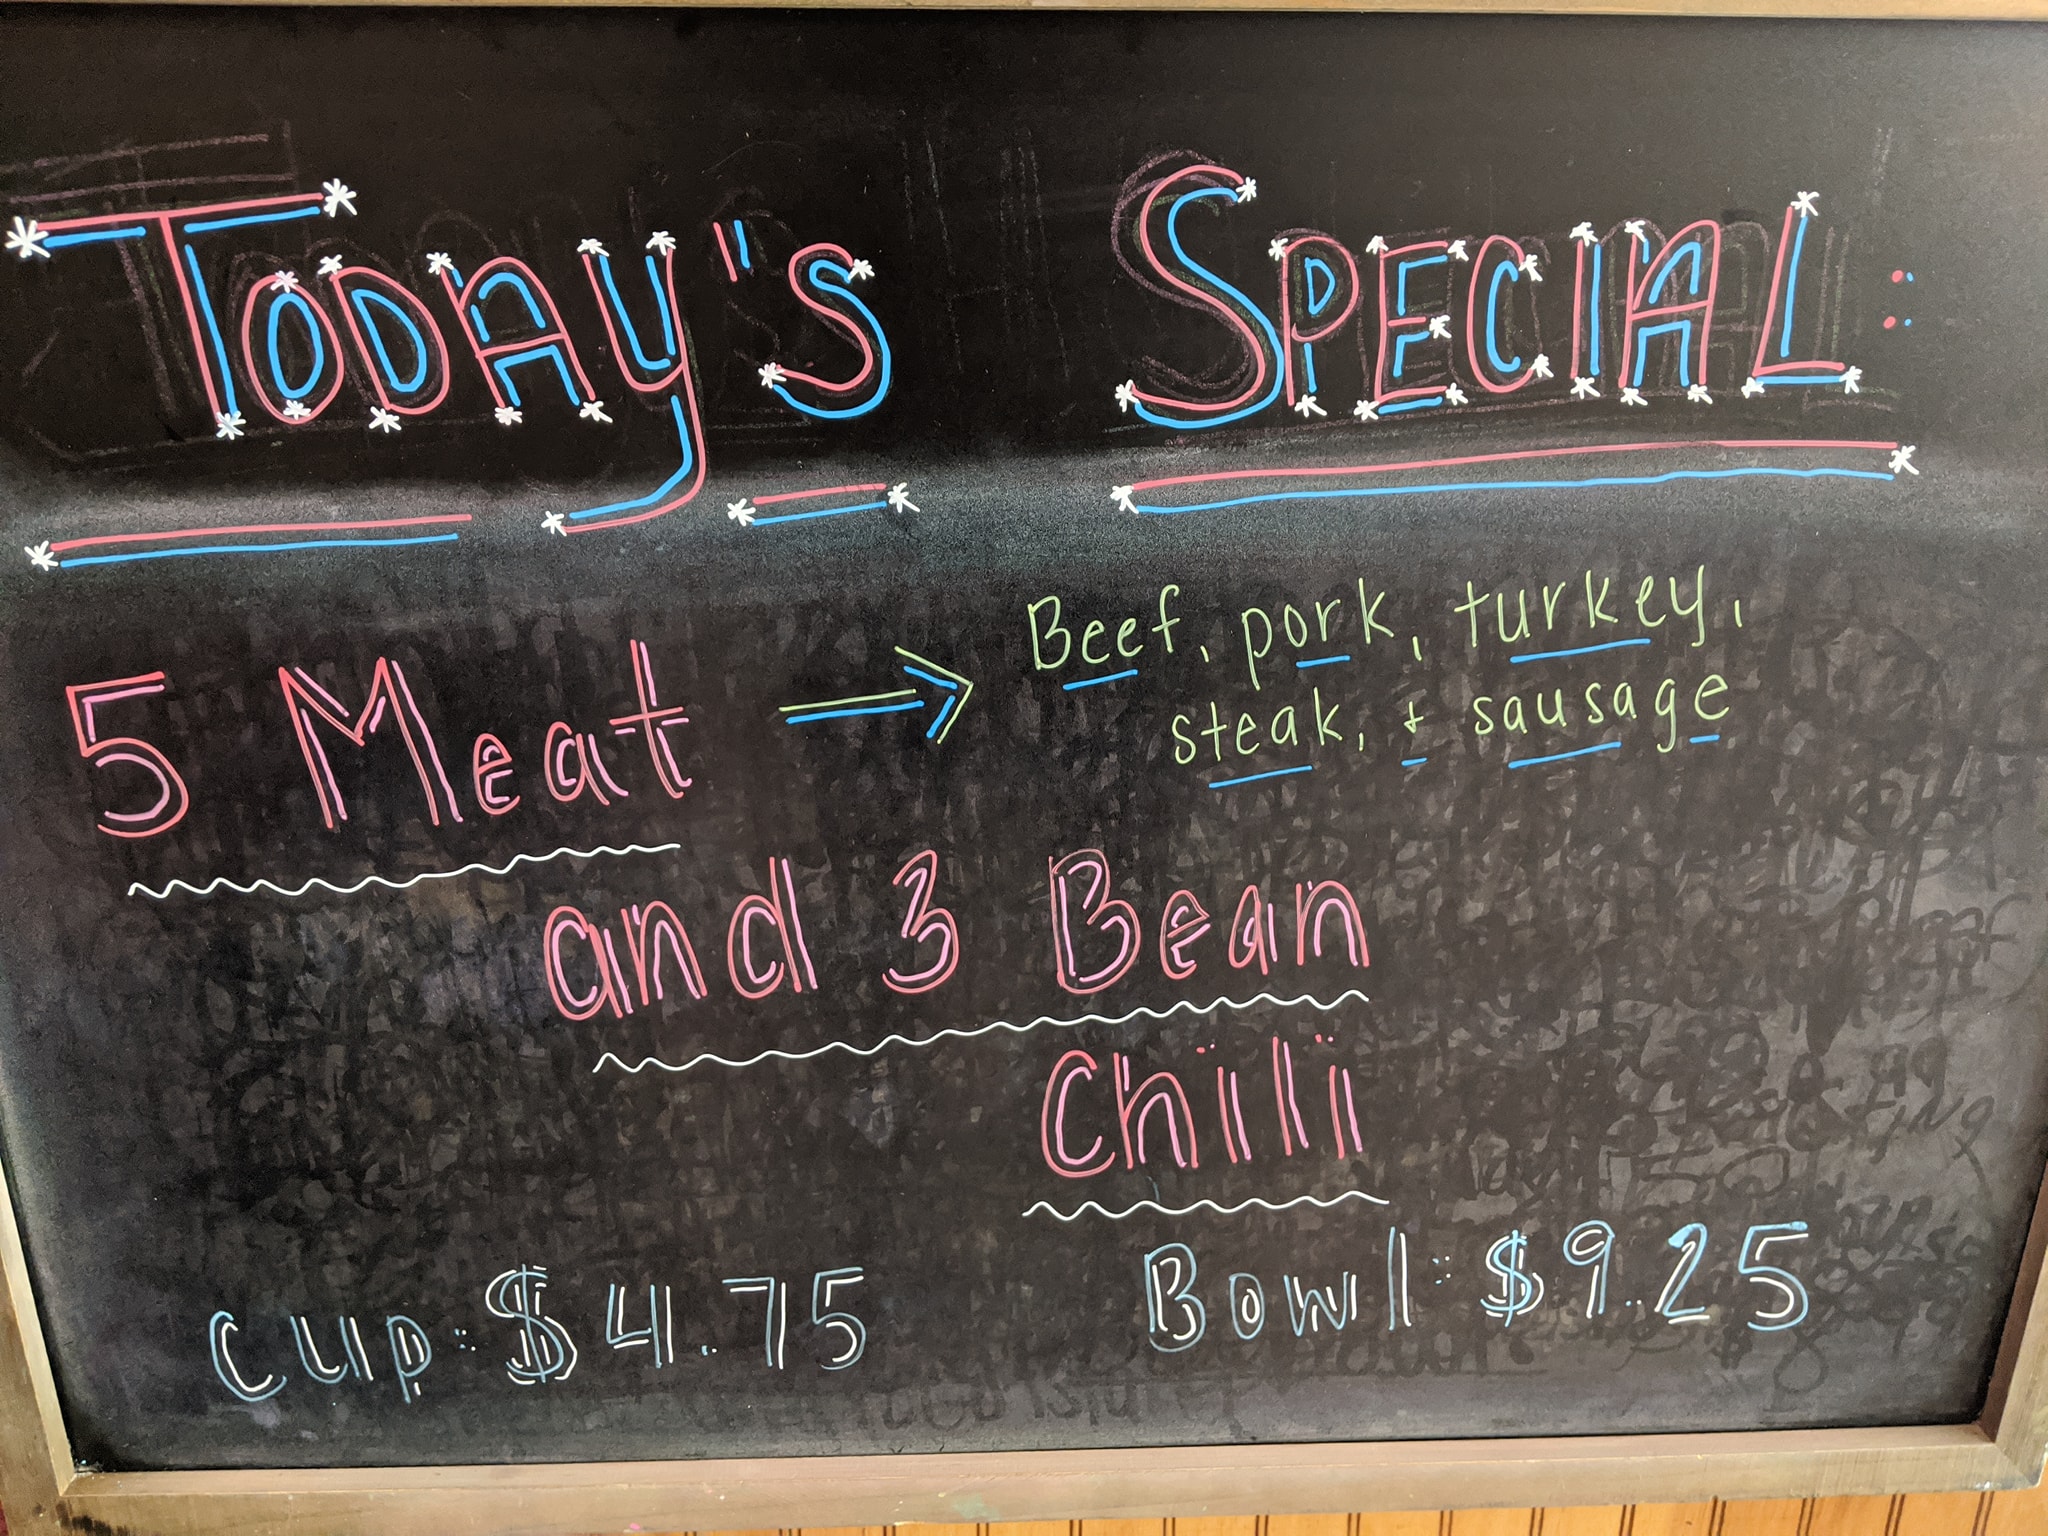 Today's Special:
5 Meat
Beef, pork, turkey,
steak, + sausage
and 3 Bean
Chili
Cup: $4.75
Bowl: $9.25